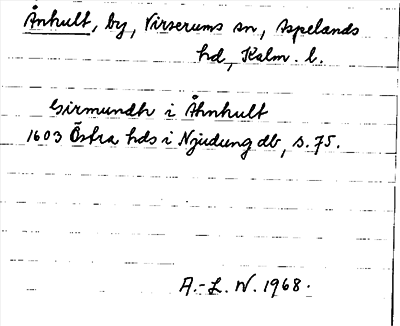 Ånhult, by, Virserums sn, Aspelands
hd, Kalm. l.
Girmundh i Åhnhult
1603 Östra hds i Njudung db, s. 75.
A.-L. N. 1968.